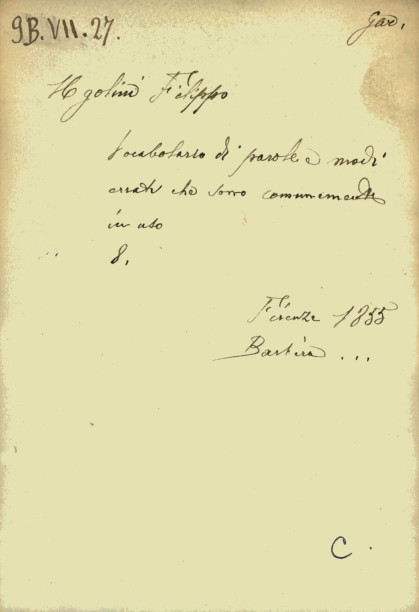 9B.VII.27.
Gar.
Ugolini Filippo
Vocabolario di parole e modi
errati che sono comunemente
in uso
8.
Firenze 1855
Barbèra ...
C.